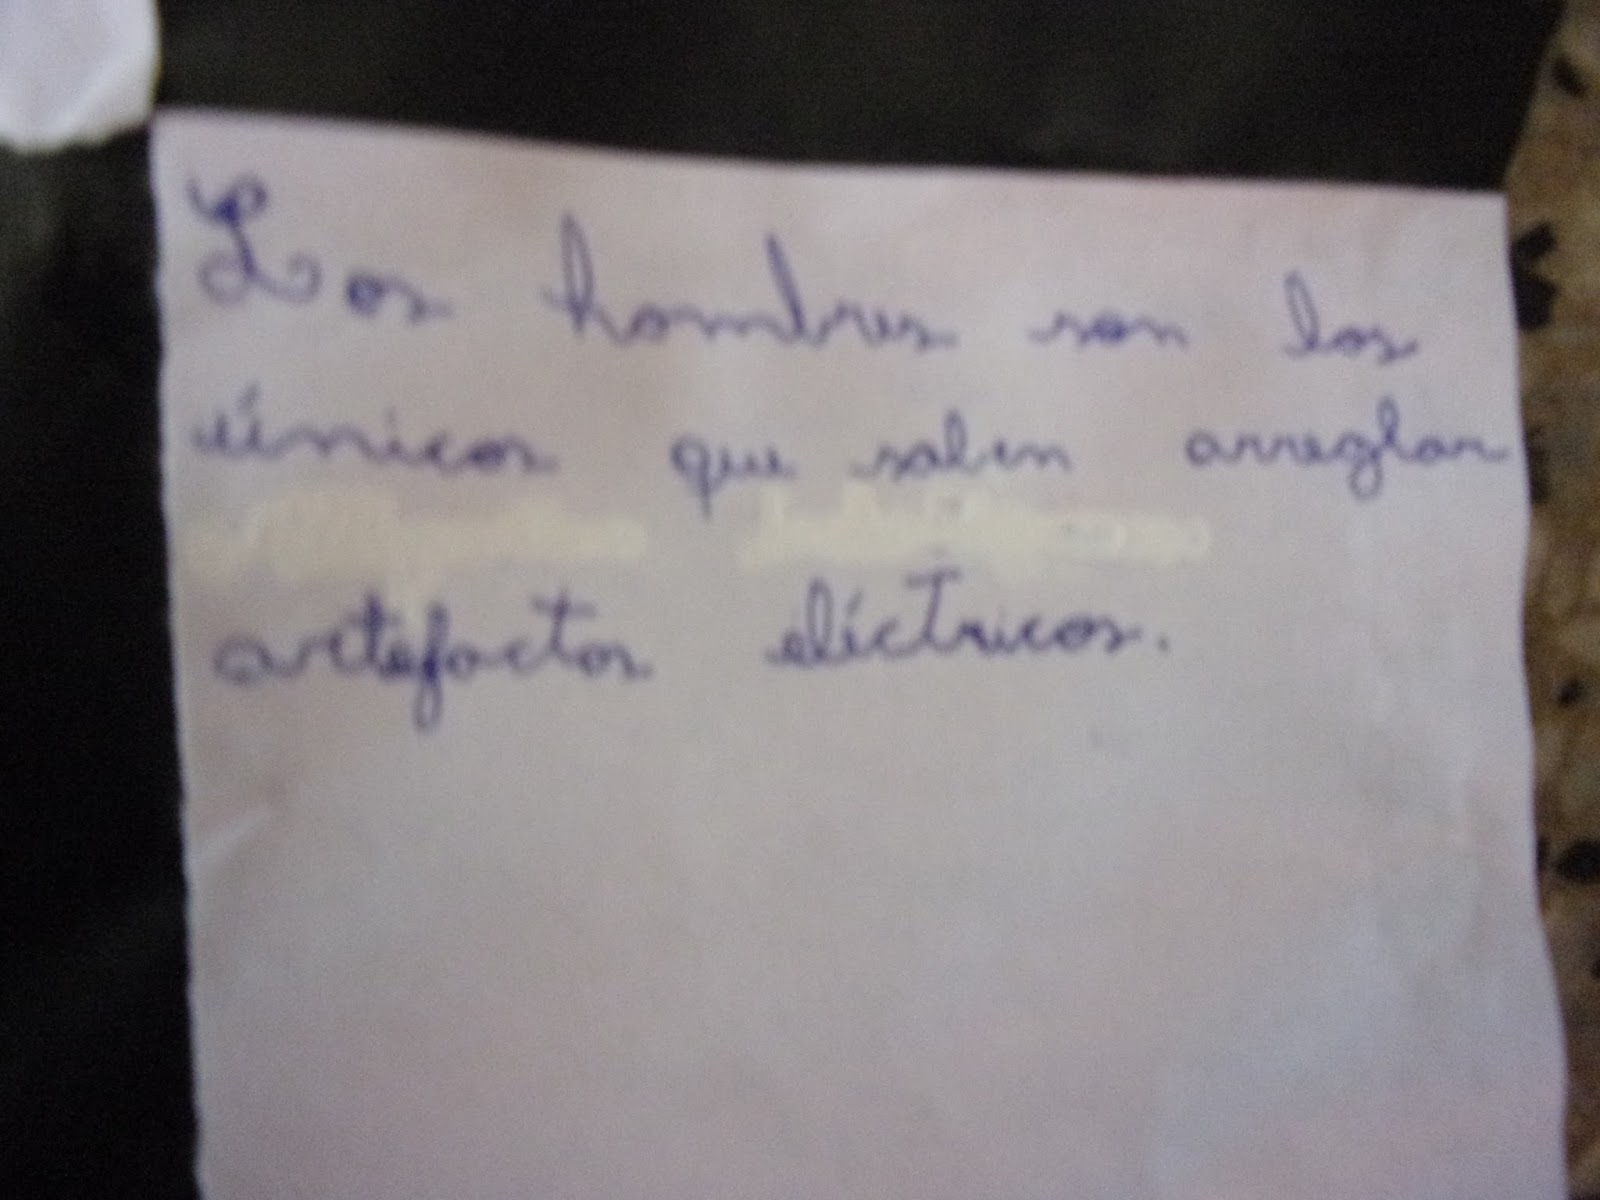 Los hombres son los
únicos que saben arreglar
artefactos eléctricos.